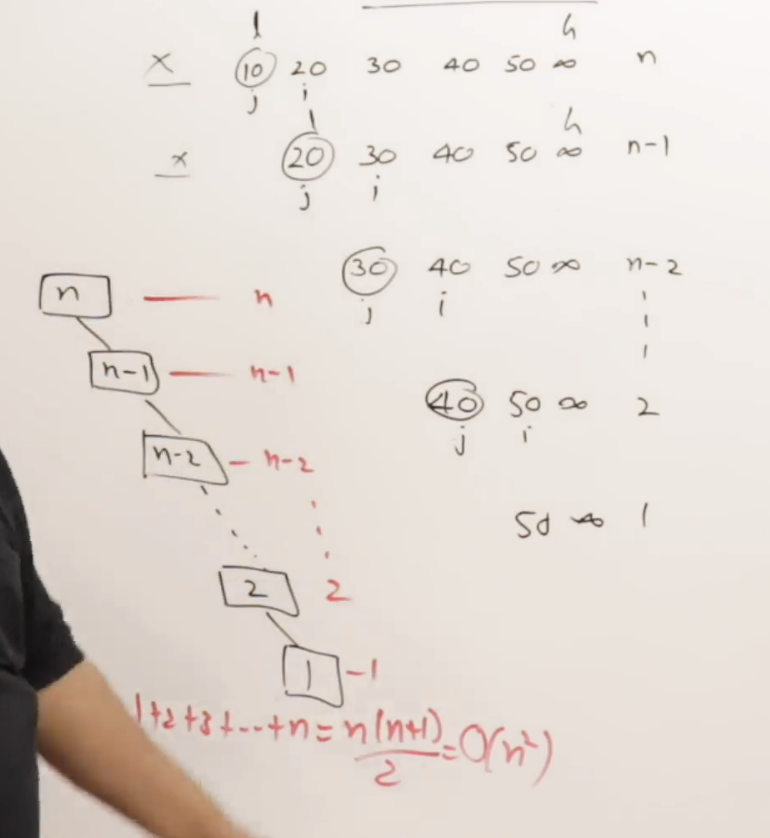 l h
x 10 20 30 40 50 ∞ n
j i
l h
x 20 30 40 50 ∞ n-1
j i
30 40 50 ∞ n-2
j i
40 50 ∞ 2
j i
50 ∞ 1
n n
n-1 n-1
n-2 n-2
2 2
1 -1
1+2+3+...+n = n(n+1)/2 = O(n²)